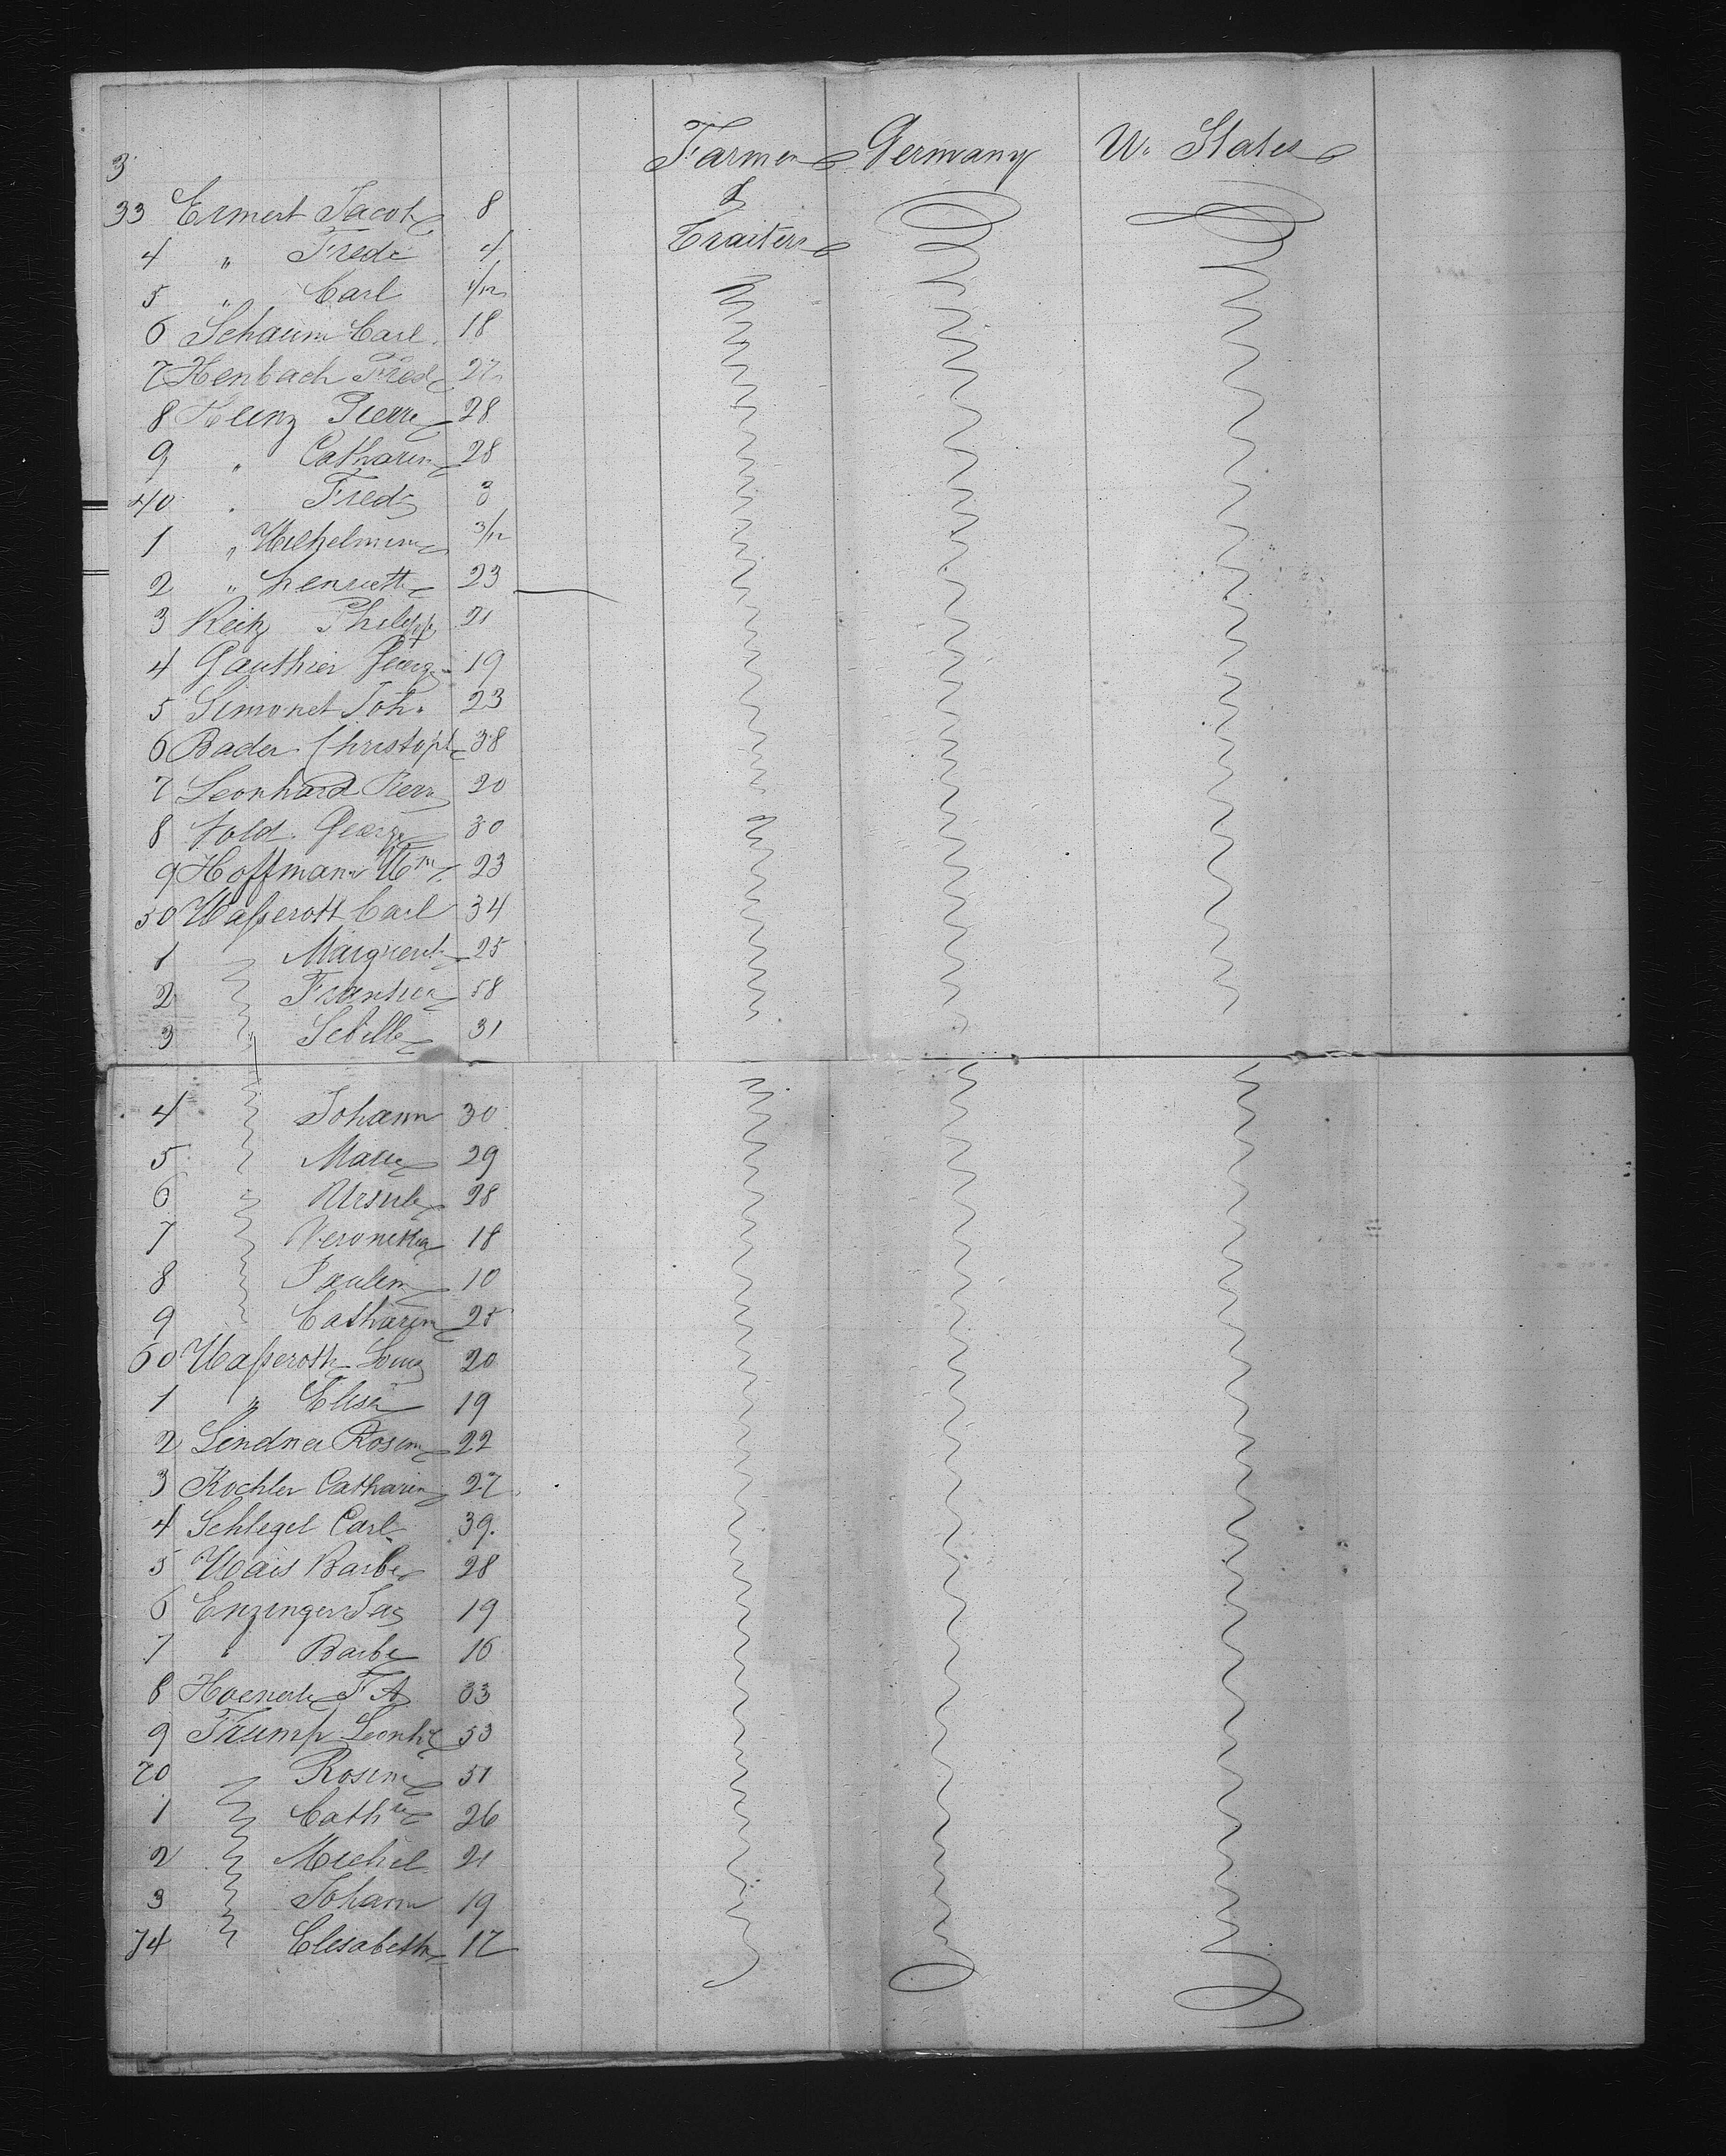 3
Farmers Germany U. States
33 Ermert Jacob 8 &
4 " Fredc 4 Traiters
5 " Carl 1/12
6 Schaum Carl. 18
7 Henbach Fred 27
8 Heinz Pierre 28
9 " Catharin 28
40 " Fredc 3
1 " Wilhelmine 3/12
2 " henriette 23
3 Reitz Philipp 21
4 Gauthier George 19
5 Simonet Joh. 23
6 Bader Christoph 38
7 Leonhard Pierr 20
8 Vold. George 30
9 Hoffmann Wm 23
50 Waßerott Carl 34
1 Margreeth 25
2 58
3 Sebille 31
4 Johann 30
5 Marie 29
6 Ursule 28
7 Veronika 18
8 Paulin 10
9 Catharin 25
60 Waßeroth Louis 20
1 " Elisa 19
2 Lindner Rosin 22
3 Kochler Catharin 27
4 Schlegel Carl 39.
5 Wais Barbe 28
6 Enzinger Jac 19
7 " Barbe 16
8 F A 33
9 Trump Leonhd 53
70 Rosine 51
1 Cathne 26
2 Michel 21
3 Johann 19
74 Elisabeth 17